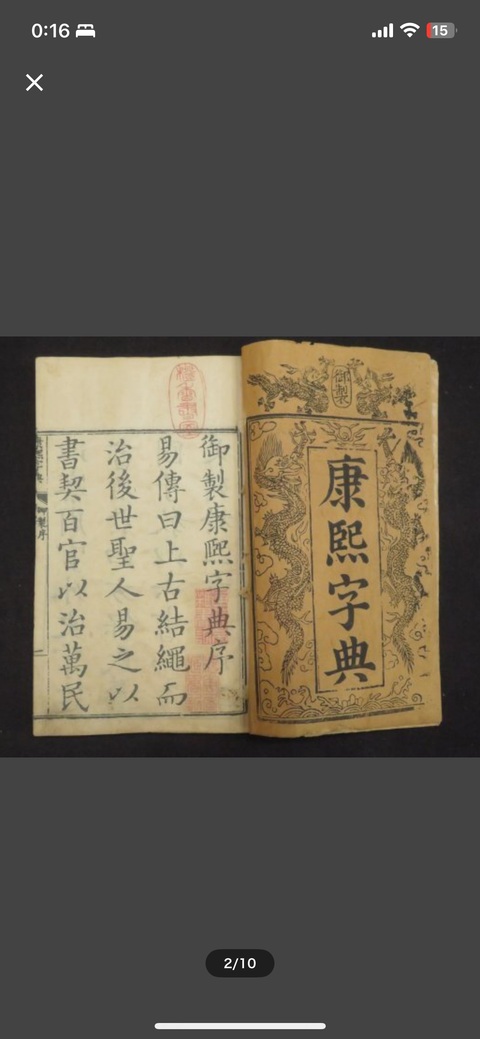 0:16
15
御製
康熙字典
御製康熙字典序
易傳曰上古結繩而
治後世聖人易之以
書契百官以治萬民
2/10